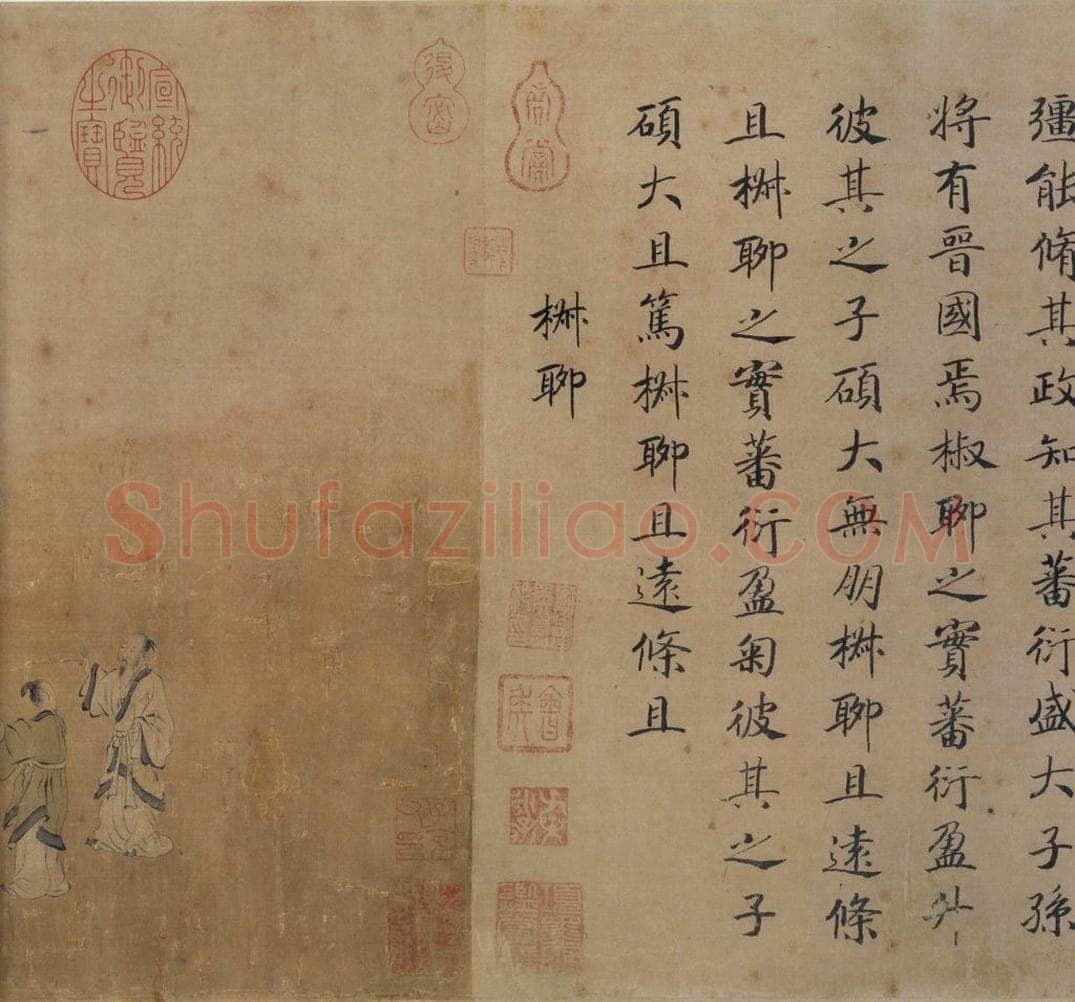 彊能脩其政知其蕃衍盛大子孫
將有晉國焉椒聊之實蕃衍盈升
彼其之子碩大無朋椒聊且遠條
且椒聊之實蕃衍盈匊彼其之子
碩大且篤椒聊且遠條且
椒聊
宣統御覽之寶
Shufaziliao.COM